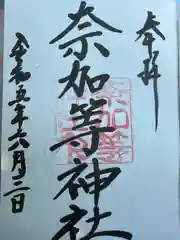 奉拝
奈加等神社
令和五年六月二日